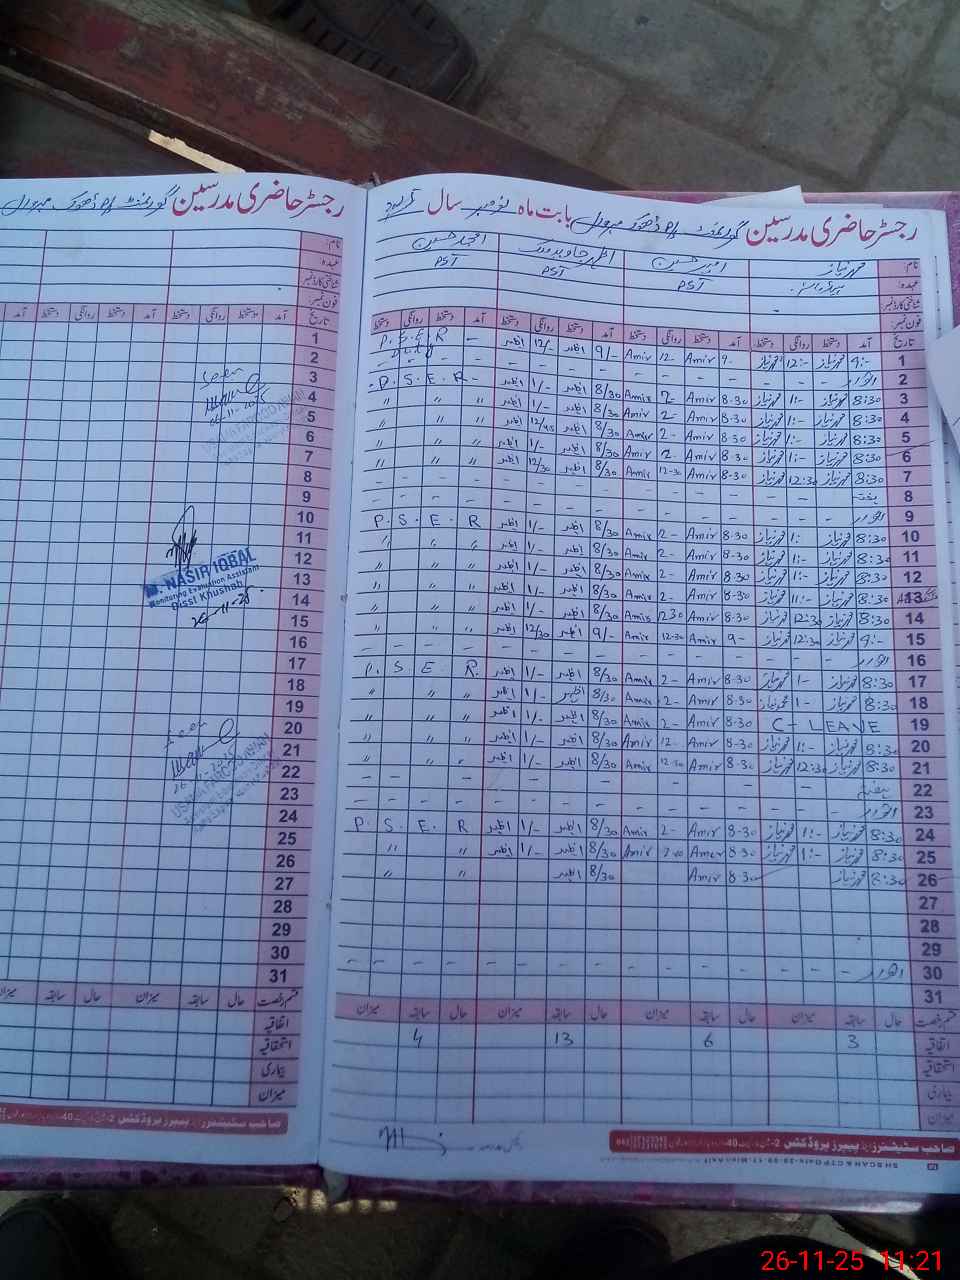 رجسٹر حاضری مدرسین گورنمنٹ P/S ڈھوک
رجسٹر حاضری مدرسین گورنمنٹ P/S ڈھوک بابت ماہ نومبر سال
نام: محمد نیاز امیر حسین اظہر جاوید امجد حسین
عہدہ: PST PST PST
شناختی کارڈ نمبر
فون نمبر:
تاریخ آمد دستخط روانگی دستخط آمد دستخط روانگی دستخط آمد دستخط روانگی دستخط آمد دستخط روانگی دستخط
1 9:- محمد نیاز 12:- محمد نیاز 9- Amir 12- Amir 9/- اظہر 12/- اظہر - P.S.E.R
2 اتوار - - - - - - - - - - - Duty
3 8:30 محمد نیاز 1:- محمد نیاز 8-30 Amir 2- Amir 8/30 اظہر 1/- اظہر P.S.E.R-
4 8:30 محمد نیاز 1:- محمد نیاز 8-30 Amir 2- Amir 8/30 اظہر 1/- اظہر " " "
5 8:30 محمد نیاز 1:- محمد نیاز 8-30 Amir 2- Amir 8/30 اظہر 12/45 اظہر " " "
6 8:30 محمد نیاز 1:- محمد نیاز 8-30 Amir 2- Amir 8/30 اظہر 1/- اظہر " " "
7 8:30 محمد نیاز 12:30 محمد نیاز 8-30 Amir 12-30 Amir 8/30 اظہر 12/30 اظہر " " "
8 ہفتہ - - - - - - - - - - -
9 اتوار - - - - - - - - - - -
10 8:30 محمد نیاز 1:- محمد نیاز 8-30 Amir 2- Amir 8/30 اظہر 1/- اظہر P.S.E.R
11 8:30 محمد نیاز 1:- محمد نیاز 8-30 Amir 2- Amir 8/30 اظہر 1/- اظہر " " "
12 8:30 محمد نیاز 1:- محمد نیاز 8-30 Amir 2- Amir 8/30 اظہر 1/- اظہر " " "
13 8:30 محمد نیاز 11:- محمد نیاز 8-30 Amir 2- Amir 8/30 اظہر 1/- اظہر " " "
14 8:30 محمد نیاز 12:30 محمد نیاز 8-30 Amir 1230 Amir 8/30 اظہر 1/- اظہر " " "
15 9:- محمد نیاز 12:30 محمد نیاز 9- Amir 12-30 Amir 9/- اظہر 12/30 اظہر " " "
16 اتوار - - - - - - - - - - -
17 8:30 محمد نیاز 1- محمد نیاز 8-30 Amir 2- Amir 8/30 اظہر 1/- اظہر P.S.E.R.
18 8:30 محمد نیاز 1- محمد نیاز 8-30 Amir 2- Amir 8/30 اظہر 1/- اظہر " " "
19 C-LEAVE 8-30 Amir 2- Amir 8/30 اظہر 1/- اظہر " " "
20 8:30 محمد نیاز 1:- محمد نیاز 8-30 Amir 12- Amir 8/30 اظہر 1/- اظہر " " "
21 8:30 محمد نیاز 12:30 محمد نیاز 8-30 Amir 12-30 Amir 8/30 اظہر 1/- اظہر " " "
22 ہفتہ - - - - - - - - - - -
23 اتوار - - - - - - - - - - -
24 8:30 محمد نیاز 1:- محمد نیاز 8-30 Amir 2- Amir 8/30 اظہر 1/- اظہر P.S.E.R
25 8:30 محمد نیاز 1:- محمد نیاز 8-30 Amir Amir 8/30 اظہر 1/- اظہر " "
26 8:30 محمد نیاز 8-30 Amir 8/30 اظہر " "
27
28
29
30 اتوار - - - - - - - - - - -
31
قسم رخصت حال سابقہ میزان حال سابقہ میزان حال سابقہ میزان حال سابقہ میزان
اتفاقیہ 3 6 13 4
استحقاقیہ
بیماری
میزان
صاحب سٹیشنرز اینڈ پیپرز پروڈکٹس
نام:
عہدہ:
شناختی کارڈ نمبر
فون نمبر:
تاریخ آمد دستخط روانگی دستخط آمد دستخط روانگی
1
2
3
4
5
6
7
8
9
10
11
12
13
14
15
16
17
18
19
20
21
22
23
24
25
26
27
28
29
30
31
Seen
M. NASIR IQBAL
Monitoring Evaluation Assistant
Disst Khushab
26-11-25
Seen
قسم رخصت حال سابقہ میزان حال سابقہ میزان
اتفاقیہ
استحقاقیہ
بیماری
میزان
صاحب سٹیشنرز اینڈ پیپرز پروڈکٹس
26-11-25 11:21